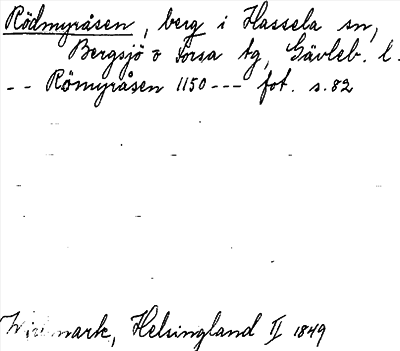 Rödmyråsen, berg i Hassela sn,
Bergsjö o Forsa tg, Gävleb. l.
-- Römyråsen 1150 --- fot. s. 82
Widmark, Helsingland II 1849